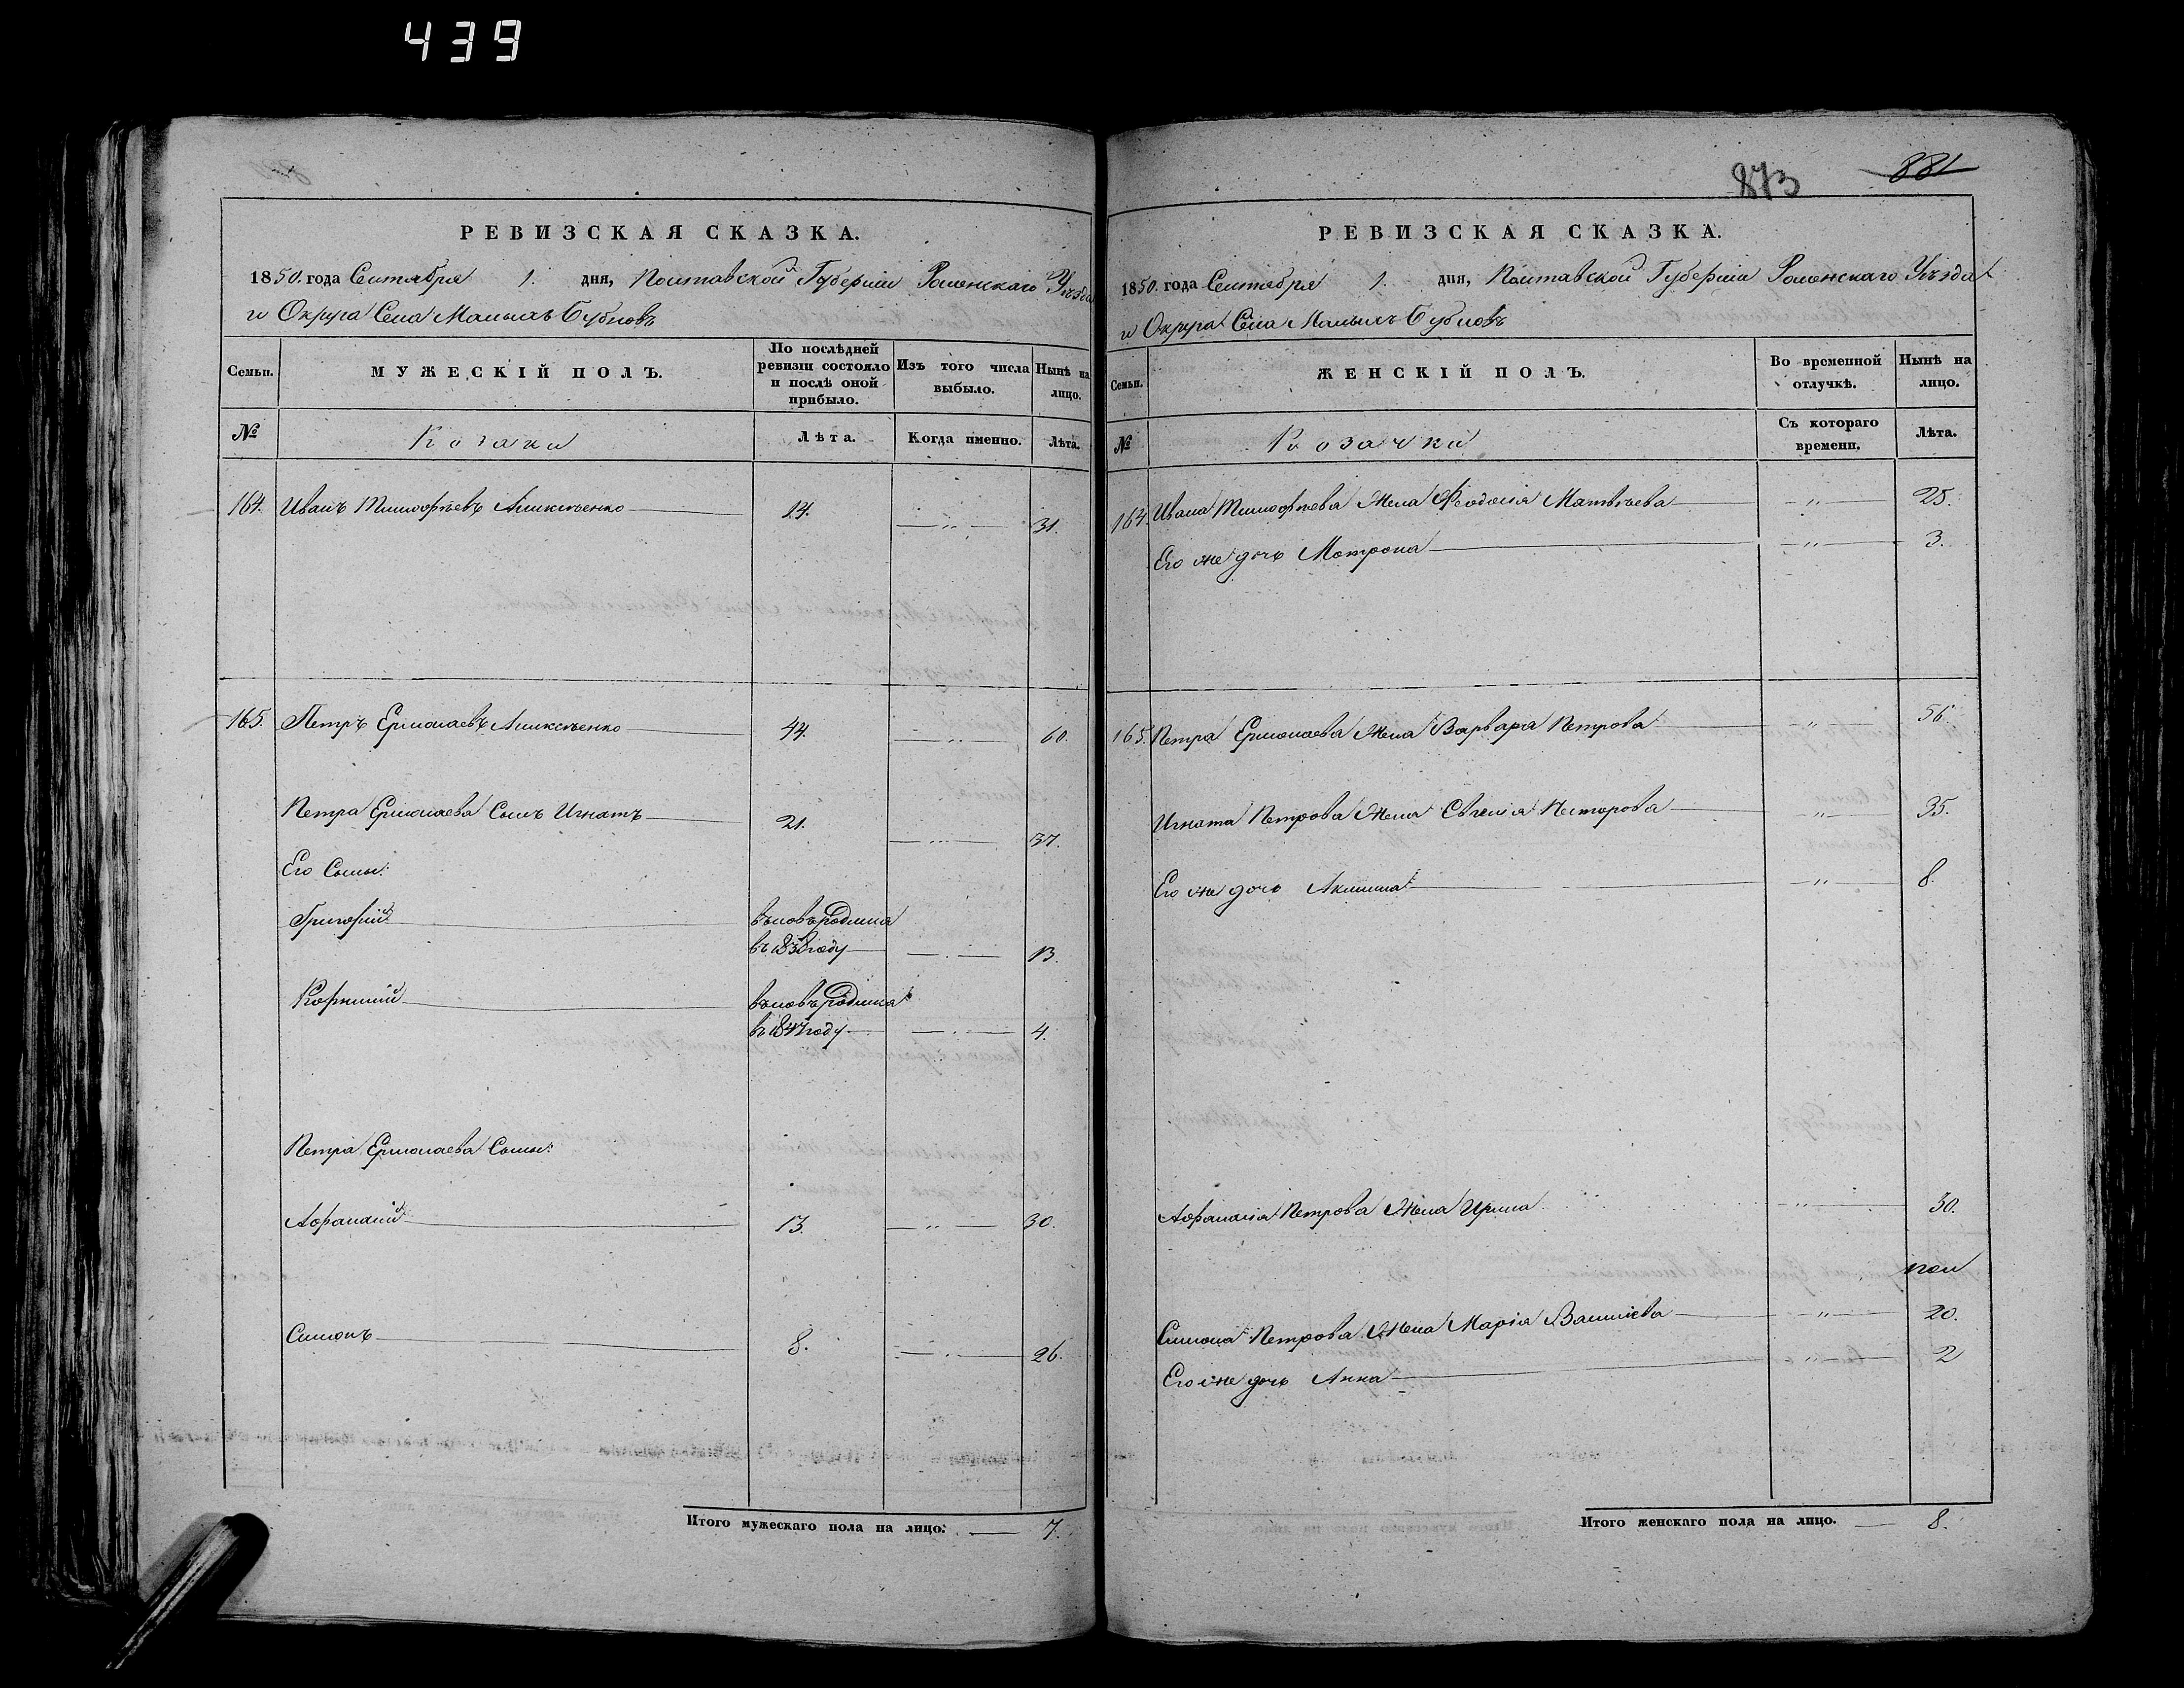 439
РЕВИЗСКАЯ СКАЗКА.
1850. года Сентября 1. дня, Полтавской Губерніи Роменскаго Уѣзда
и Округа Села Малыхъ Бубновъ
Семьи.
МУЖЕСКІЙ ПОЛЪ.
По послѣдней ревизіи состояло и послѣ оной прибыло.
Изъ того числа выбыло.
Нынѣ на лицо.
№
Козаки
Лѣта.
Когда именно.
Лѣта.
164. Иванъ Тимофѣевъ Алексѣенко 14. — „ — 31.
165. Петръ Ермолаевъ Алексѣенко 44. — „ — 60.
Петра Ермолаева Сынъ Игнатъ 21. — „ — 37.
Его Сыны:
Григорій вновь родился
въ 1838 году — „ — 13.
Корнилій вновь родился
въ 1847 году — „ — 4.
Петра Ермолаева Сыны:
Афанасій 13. — „ — 30.
Симонъ 8. — „ — 26.
Итого мужескаго пола на лицо. — 7.
873 881
РЕВИЗСКАЯ СКАЗКА.
1850. года Сентября 1. дня, Полтавской Губерніи Роменскаго Уѣзда
и Округа Села Малыхъ Бубновъ
Семьи.
ЖЕНСКІЙ ПОЛЪ.
Во временной отлучкѣ.
Нынѣ на лицо.
№
Козачки
Съ котораго времени.
Лѣта.
164. Ивана Тимофѣева Жена Феодосія Матвѣева — „ — 25.
Его же дочь Мотрона — „ — 3.
165. Петра Ермолаева Жена Варвара Петрова — „ — 56.
Игната Петрова Жена Евгенія Нестерова — „ — 35.
Его же дочь Акилина — „ — 8.
Афанасія Петрова Жена Ирина — „ — 30.
Симона Петрова Жена Марія Василіева — „ — 20.
Его же дочь Анна — „ — 2
Итого женскаго пола на лицо. — 8.